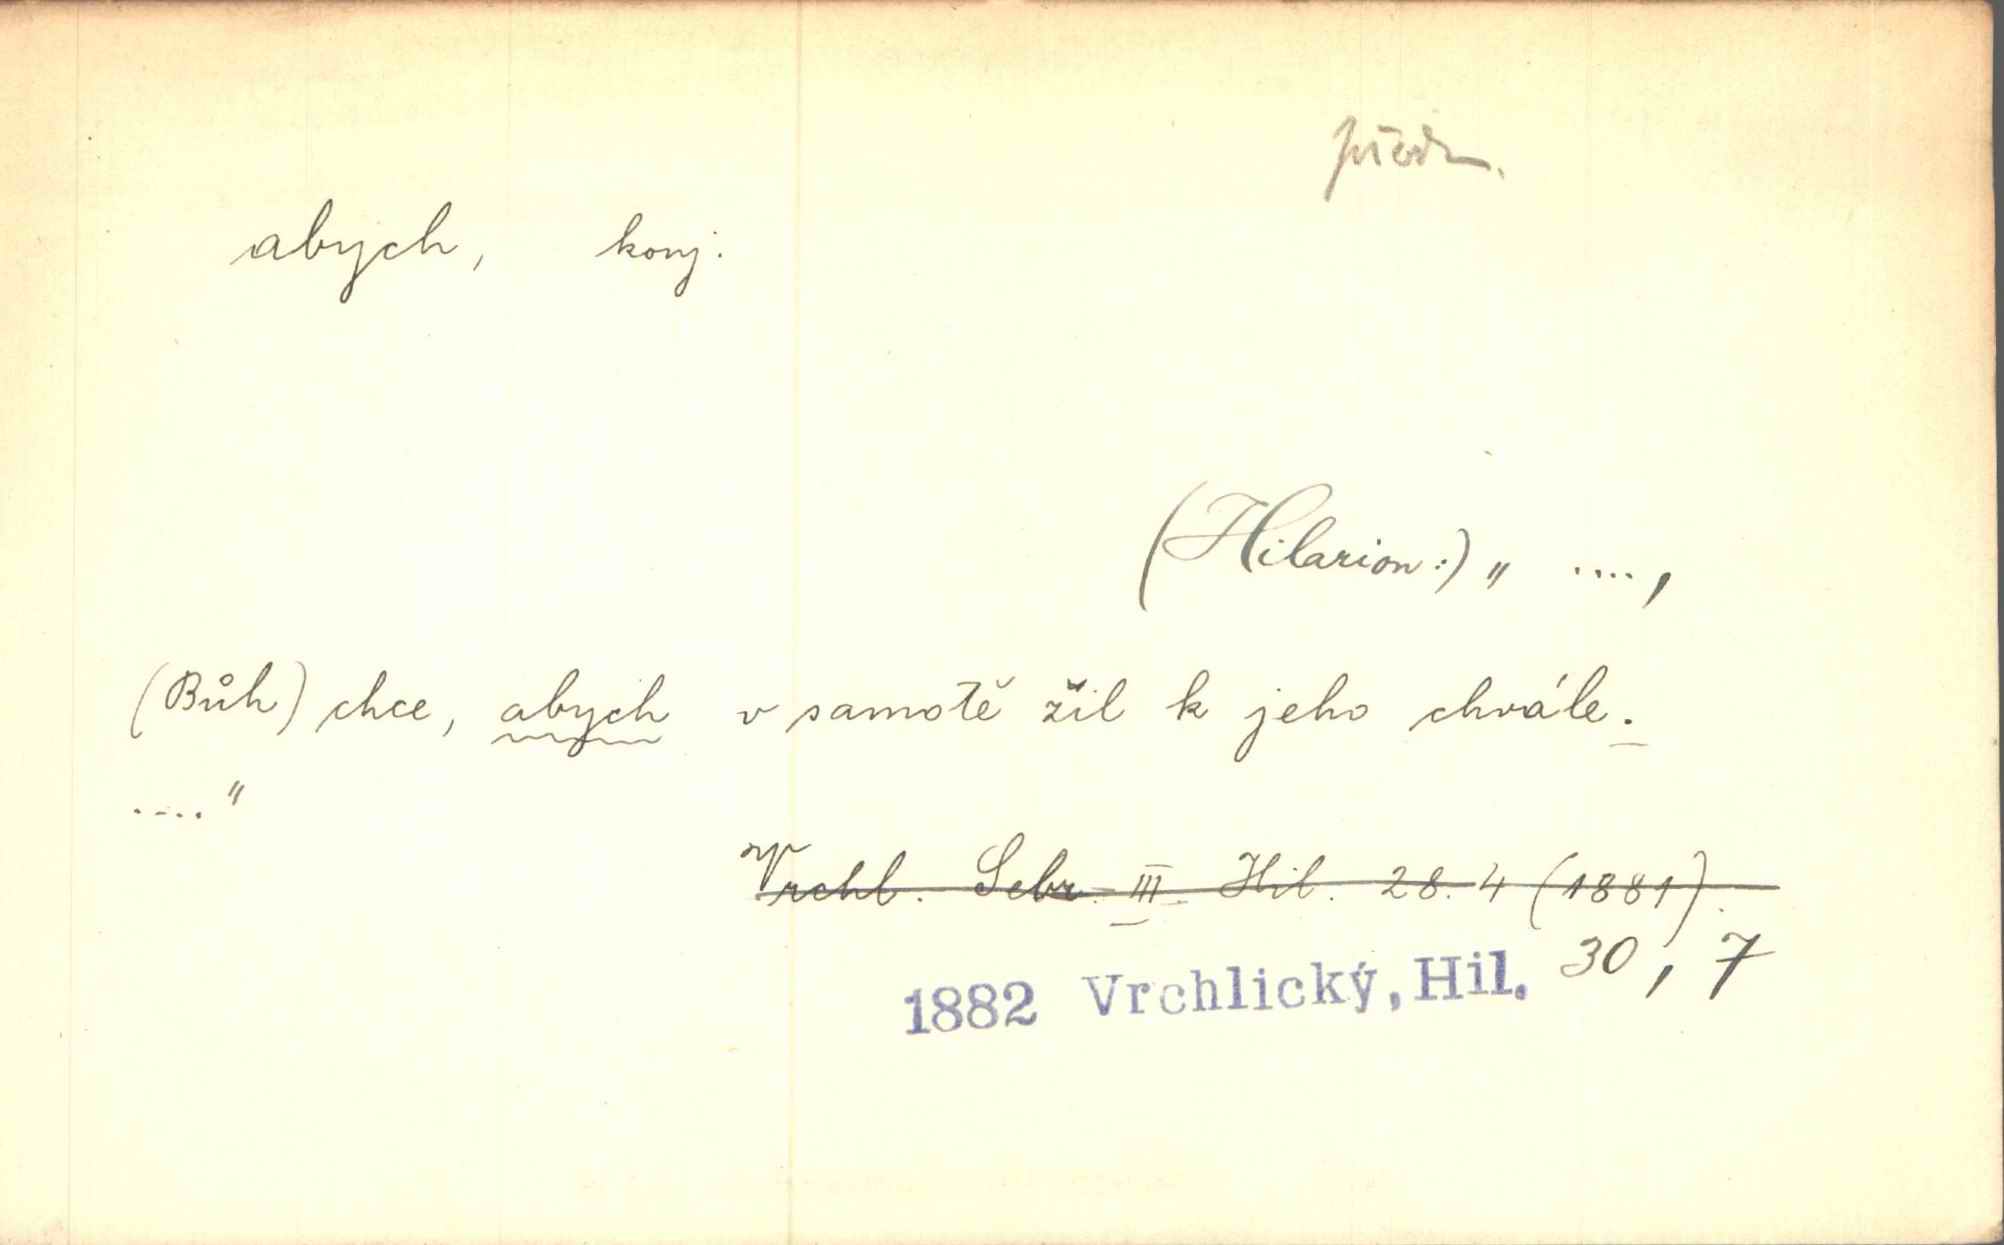 předm.
abych, konj.
(Hilarion:) „ ....,
(Bůh) chce, abych v samotě žil k jeho chvále.
...."
Vrchl. Sebr. III. Hil. 28. 4 (1881).
1882 Vrchlický, Hil. 30, 7